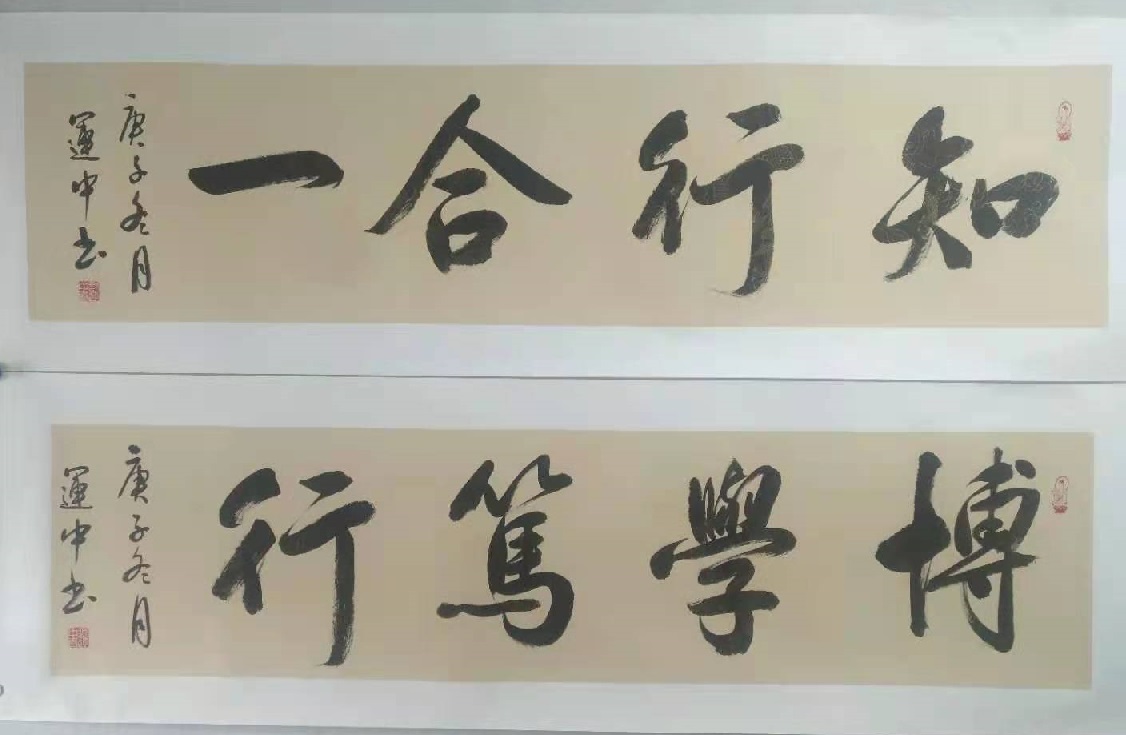 知行合一
庚子冬月
運中书
博學篤行
庚子冬月
運中书